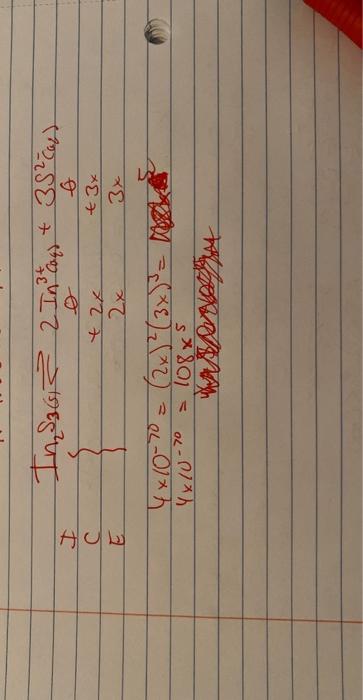 In₂S₃(s) ⇌ 2In³⁺(aq) + 3S²⁻(aq)
I } 0 0
C +2x +3x
E 2x 3x
4×10⁻⁷⁰ = (2x)²(3x)³ =
4×10⁻⁷⁰ = 108x⁵